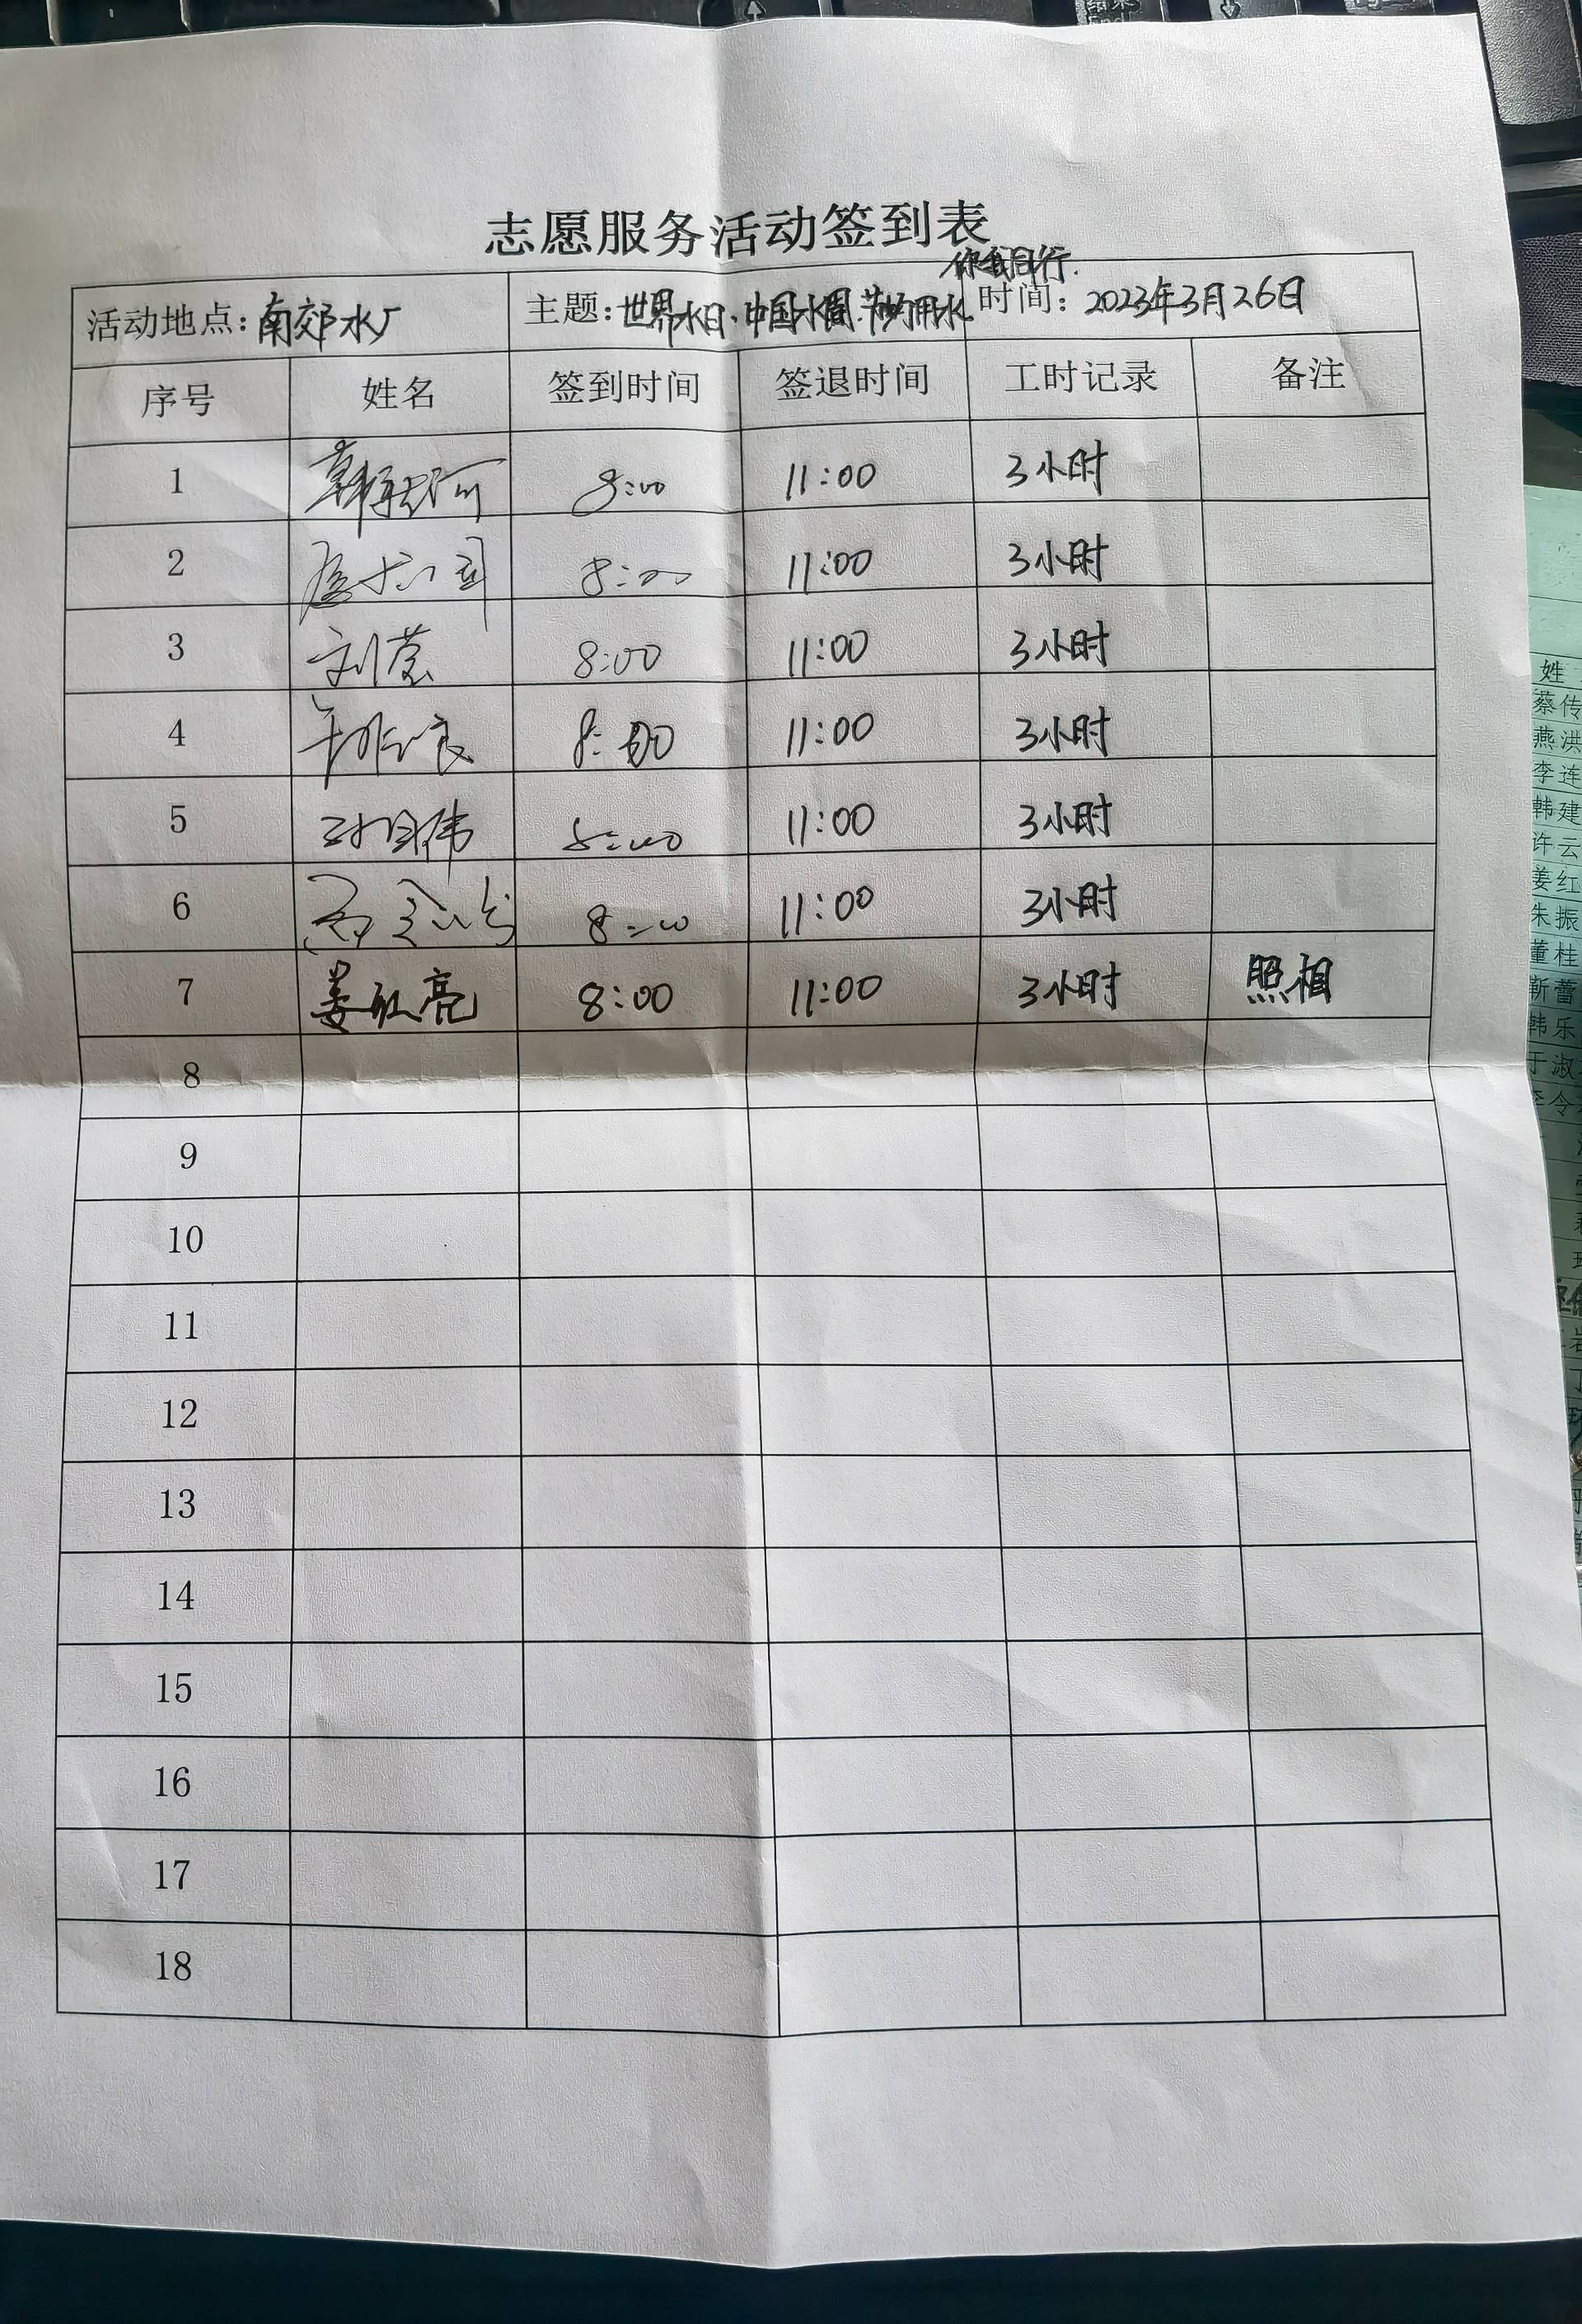 志愿服务活动签到表
你我同行.
活动地点:南郊水厂 主题:世界水日.中国水周.节约用水 时间:2023年3月26日
序号 姓名 签到时间 签退时间 工时记录 备注
1 8:00 11:00 3小时
2 8:00 11:00 3小时
3 刘莹 8:00 11:00 3小时
4 8:00 11:00 3小时
5 8:00 11:00 3小时
6 8:00 11:00 3小时
7 姜红亮 8:00 11:00 3小时 照相
8
9
10
11
12
13
14
15
16
17
18
姓
蔡传
燕洪
李连
韩建
许云
姜红
朱振
董桂
靳蕾
韩乐
于淑
李令